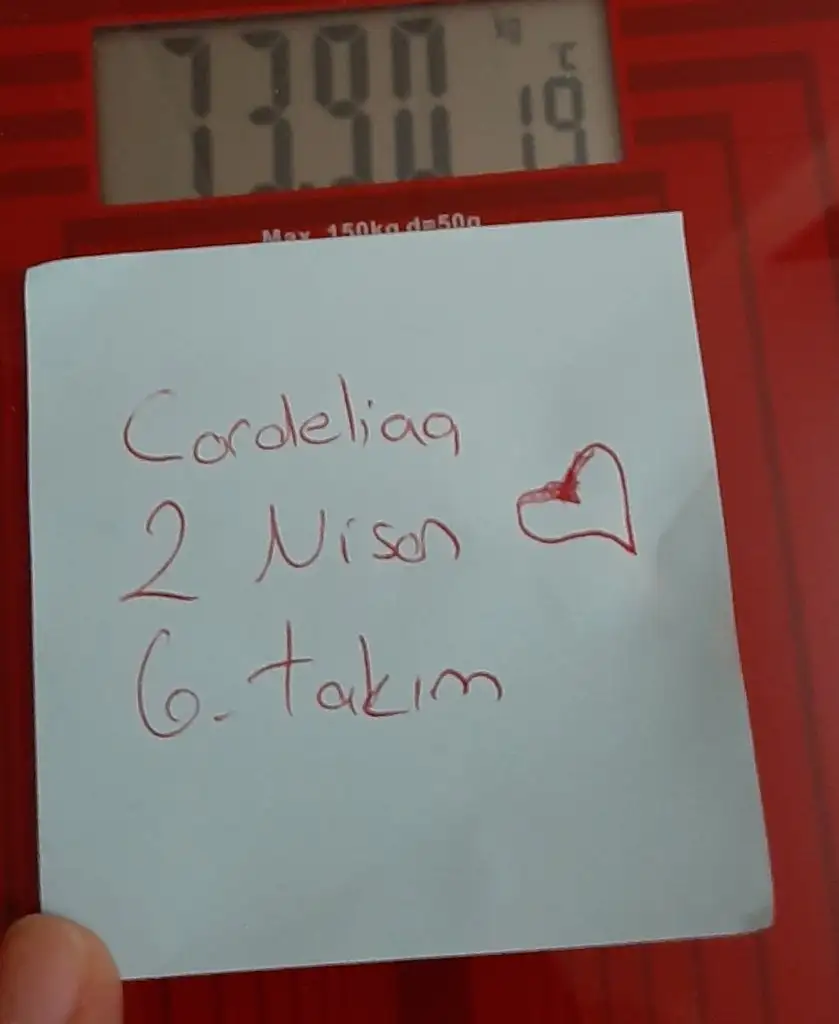 73.90 kg °C 19
Max 150kg d=50g
Cordeliaa
2 Nisan
6. takım